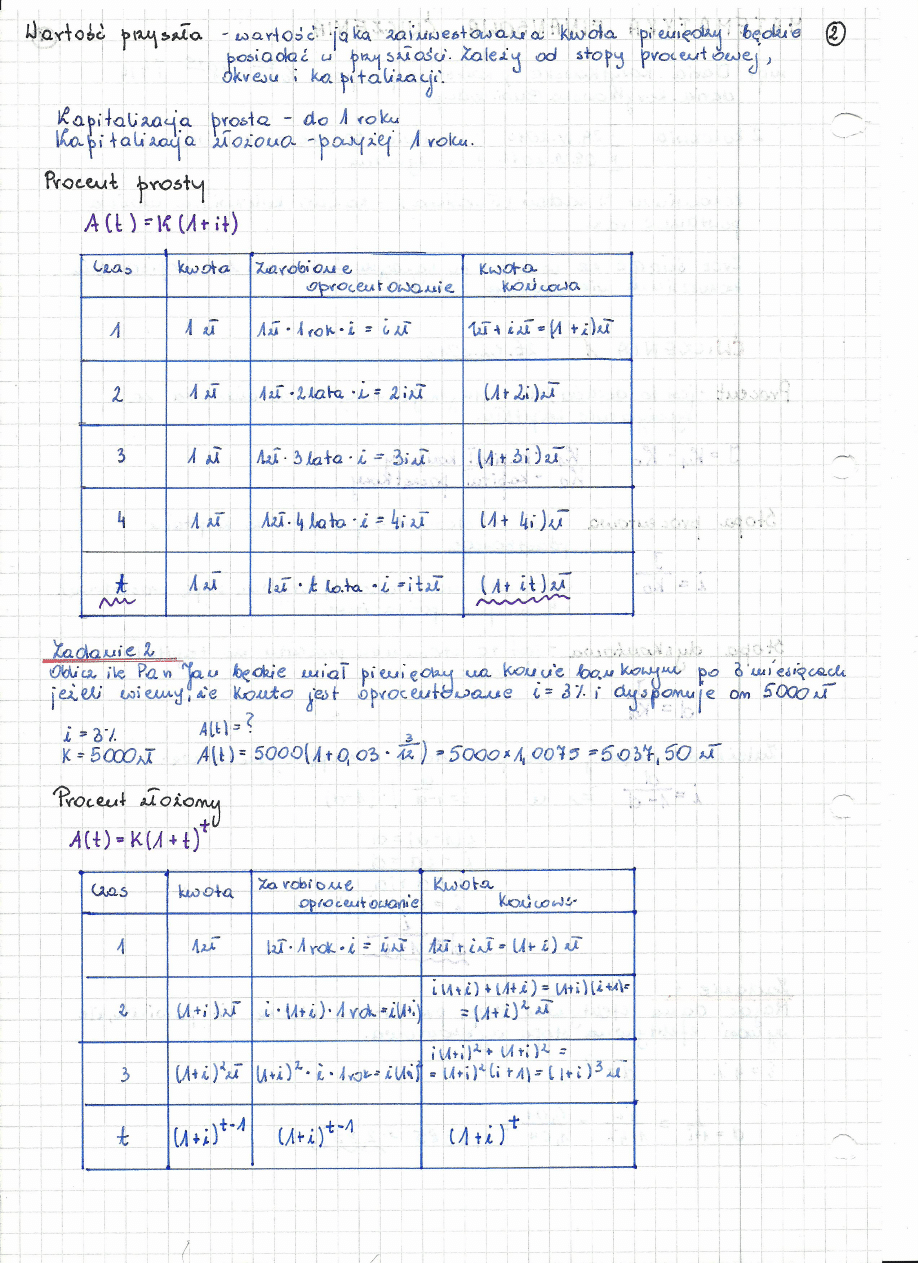 Wartość przyszła - wartość jaką zainwestowana kwota pieniędzy będzie ②
posiadać w przyszłości. Zależy od stopy procentowej,
okresu i kapitalizacji.
Kapitalizacja prosta - do 1 roku
Kapitalizacja złożona - powyżej 1 roku.
Procent prosty
A(t) = K(1+it)
Czas kwota Zarobione oprocentowanie Kwota końcowa
1 1 zł 1zł · 1 rok · i = i zł 1zł + i zł = (1+i) zł
2 1 zł 1zł · 2 lata · i = 2i zł (1+2i) zł
3 1 zł 1zł · 3 lata · i = 3i zł (1+3i) zł
4 1 zł 1zł · 4 lata · i = 4i zł (1+4i) zł
t 1 zł 1zł · t lata · i = it zł (1+it) zł
Zadanie 2
Oblicz ile Pan Jan będzie miał pieniędzy na koncie bankowym po 3 miesiącach
jeżeli wiemy, że konto jest oprocentowane i = 3% i dysponuje on 5000 zł
i = 3% A(t) = ?
K = 5000 zł A(t) = 5000(1+0,03 · 3/12) = 5000×1,0075 = 5037,50 zł
Procent złożony
A(t) = K(1+t)^t
Czas kwota Zarobione oprocentowanie Kwota końcowa
1 1zł 1zł · 1 rok · i = i zł 1zł + i zł = (1+i) zł
2 (1+i) zł i · (1+i) · 1 rok = i(1+i) i(1+i) + (1+i) = (1+i)(i+1) = = (1+i)² zł
3 (1+i)² zł (1+i)² · i · 1 rok = i(1+i)² i(1+i)² + (1+i)² = = (1+i)²(i+1) = (1+i)³ zł
t (1+i)^t-1 (1+i)^t-1 (1+i)^t